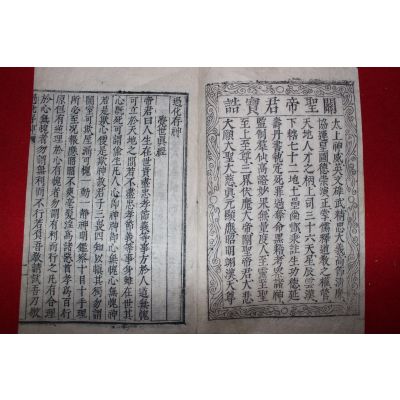 關聖帝君寶誥
太上神威英文雄武精忠大義高節清廉
協運皇圖德崇演正掌儒釋道教之權管
天地人才之柄上司三十六天星辰雲漢
下轄七十二地土壘幽酆秉注生功德延
壽丹書執定死罪過奪命黑籍考察諸神
監制羣仙高證妙果無量度人至靈至聖
至上至尊三界伏魔大帝關聖帝君大悲
大願大聖大慈眞元顯應昭明翊漢天尊
過化存神
覺世眞經
帝君曰人生在世貴盡忠孝節義等事方於人道無愧
可立於天地之間若不盡忠孝節義等事身雖在世其
心旣死可謂偸生凡人心卽神神卽心無愧心無愧神
若是欺心便是欺神故君子三畏四知以愼其獨勿謂
暗室可欺屋漏可愧一動一靜神明鑒察十目十手理
所必至況報應昭昭不爽毫髮淫爲諸惡首孝爲百行
原但有逆理於心有愧者勿謂有利而行之凡有合理
於心無愧者勿謂無利而不行若負吾敎請試吾刀敬